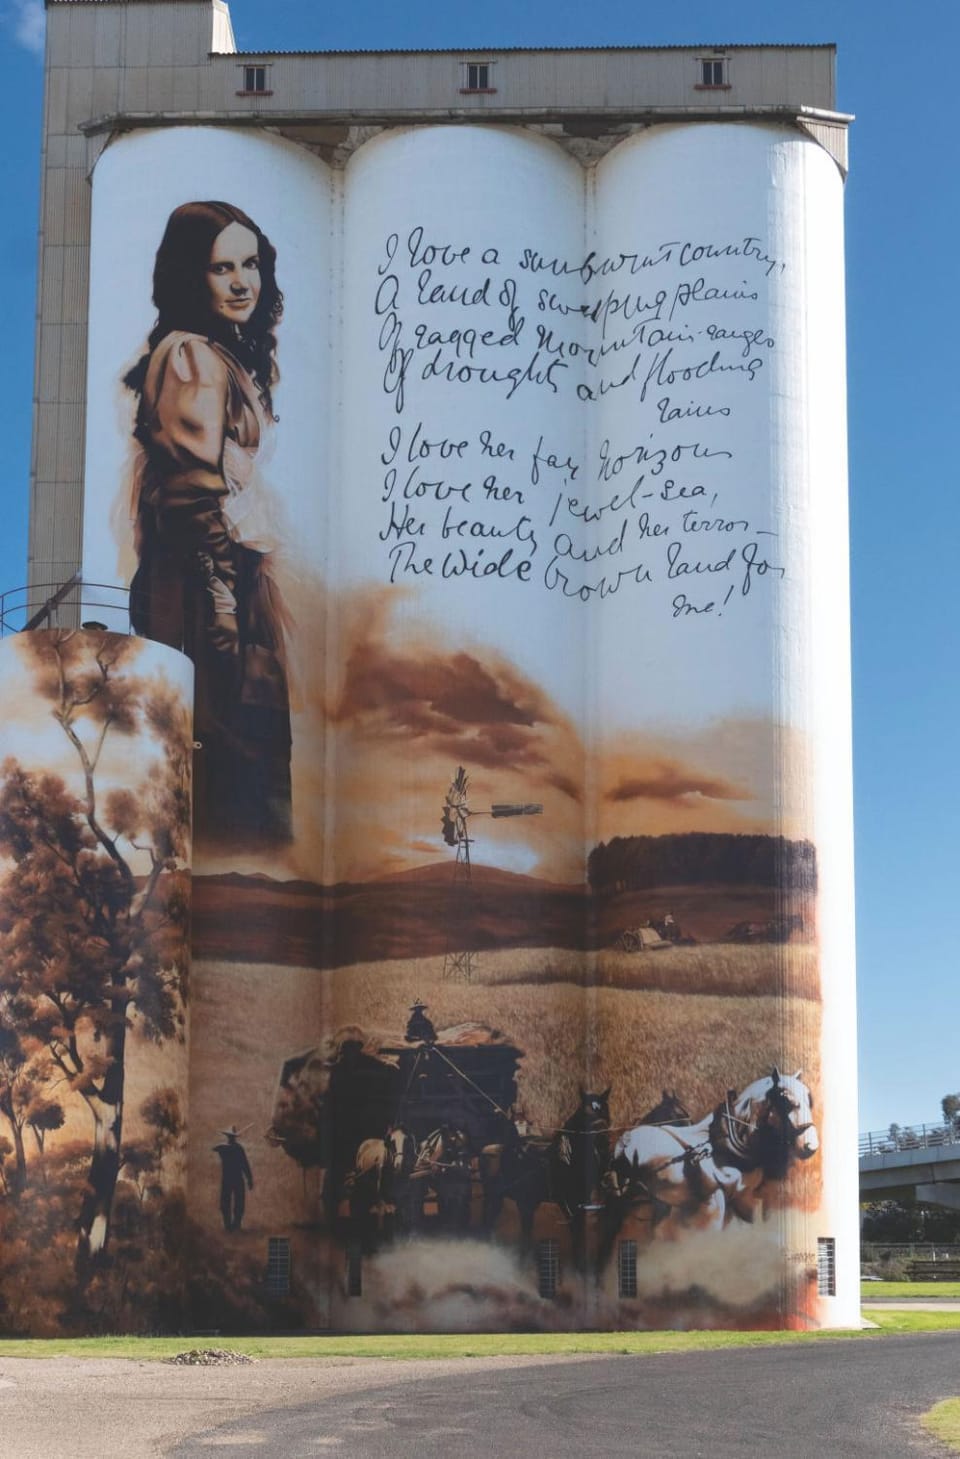 I love a sunburnt country,
A land of sweeping plains
Of ragged Mountain-ranges
Of droughts and flooding
rains
I love her far horizons
I love her jewel-sea,
Her beauty and her terror –
The Wide brown land for
me!